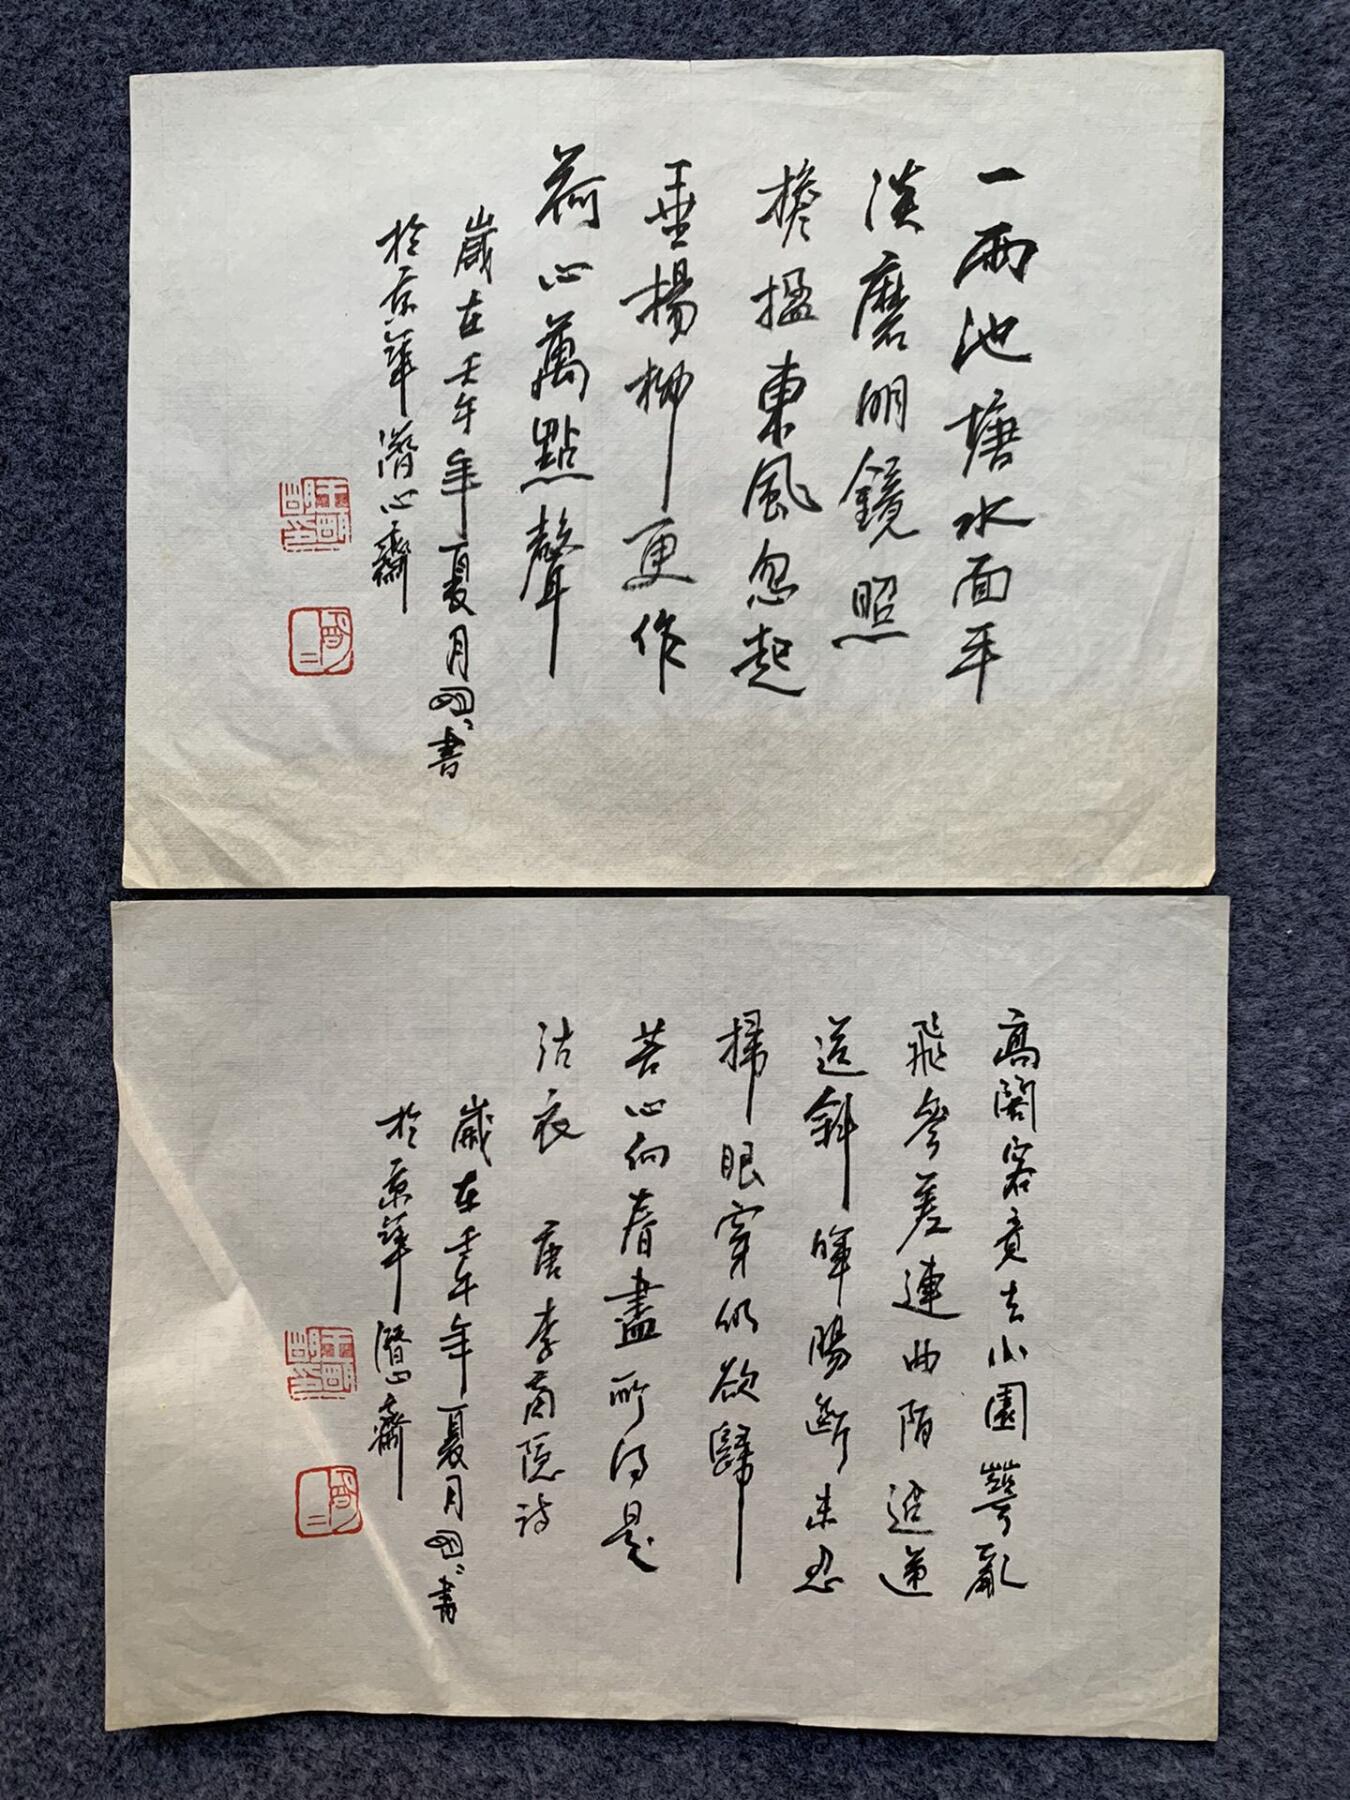 一雨池塘水面平
淡磨明鏡照
檐楹東風忽起
垂楊柳更作
荷心萬點聲
歲在壬午年夏月明〻書
於京華潛心齋
王明明印
高閣客竟去小園華亂
飛參差連曲陌迢遞
送斜暉腸斷未忍
掃眼穿仍欲歸
苦心向春盡所得是
沾衣 唐李商隱詩
歲在壬午年夏月明〻書
於京華潛心齋
王明明印